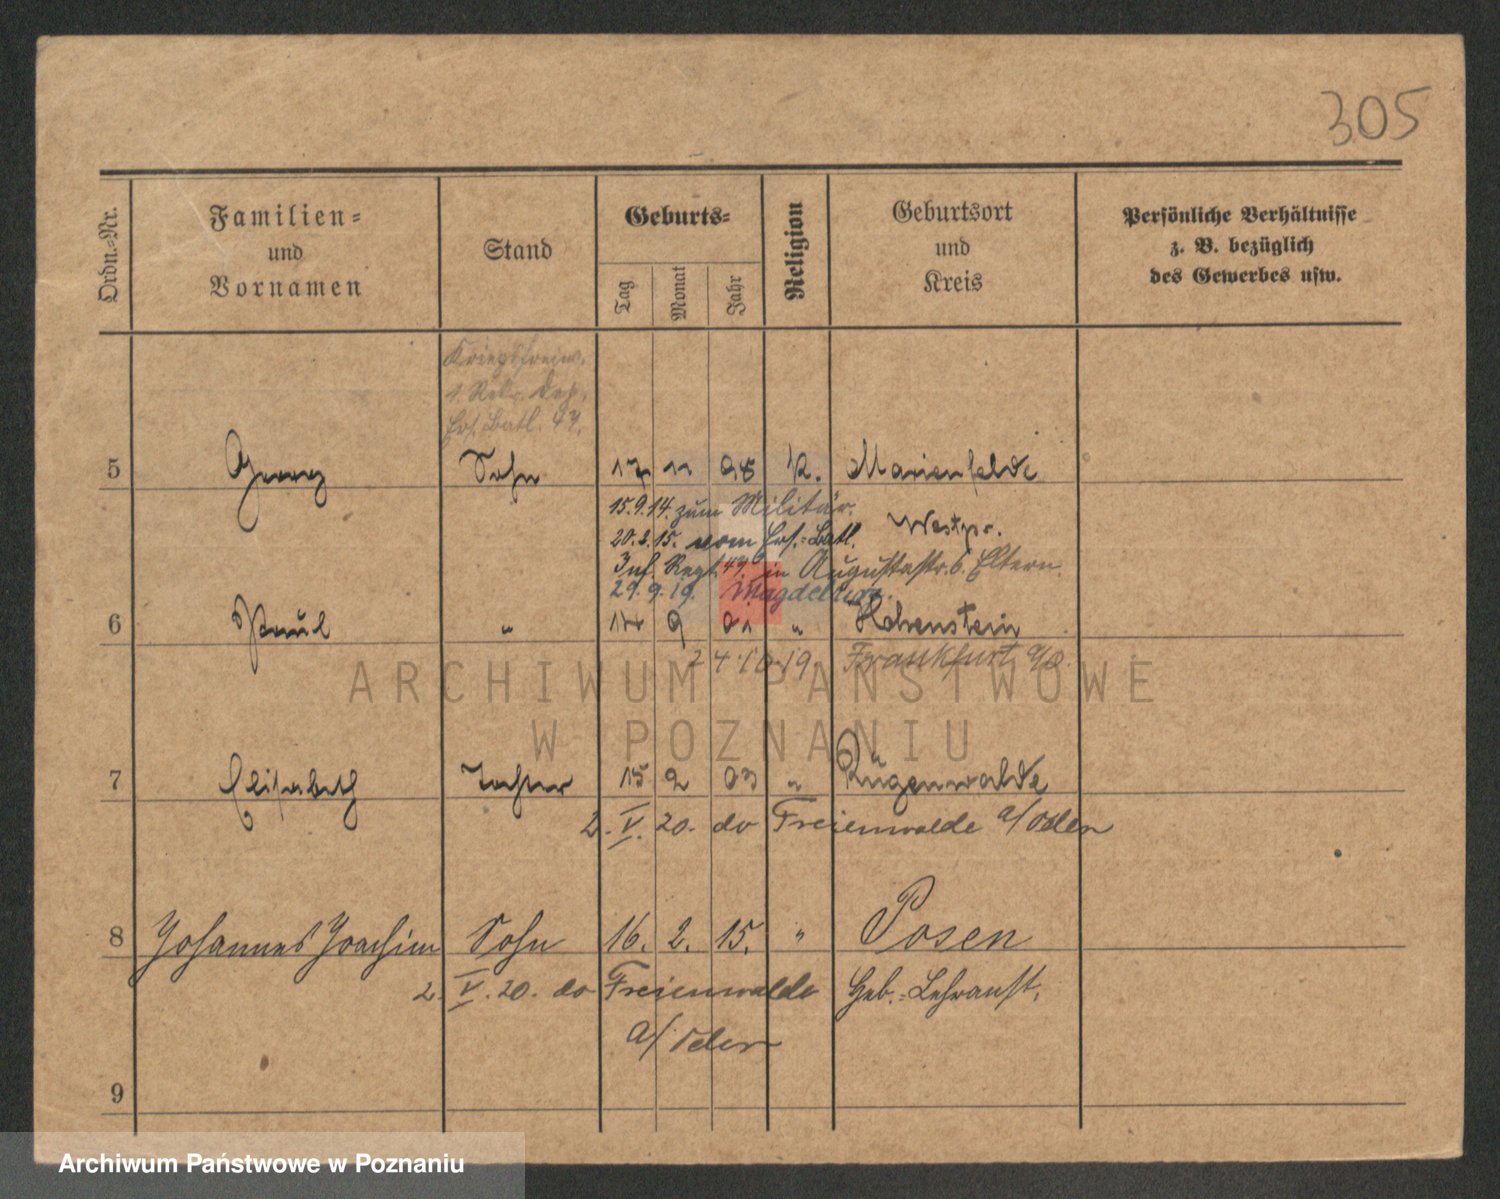 305
Ordn.-Nr.
Familien-
und
Vornamen
Stand
Geburts-
Tag
Monat
Jahr
Religion
Geburtsort
und
Kreis
Persönliche Verhältnisse
z. B. bezüglich
des Gewerbes usw.
Kriegsfreiw.
1. Rekr. Dep.
Ers. Batl. 47.
5 Georg Sohn 17 11 98 K. Marienfelde
15.9.14. zum Militär.
Westpr.
20.2.15. vom Ers.-Batl.
Inf. Regt. 49 in Augustastr. 6. Eltern.
29.9.19. Magdeburg.
6 Paul " 14 9 01 " Hohenstein
24.10.19. Frankfurt a/O.
ARCHIWUM PAŃSTWOWE
W POZNANIU
7 Elisabeth Tochter 15 2 03 " Rügenwalde
2. V. 20. do Freienwalde a/Oder
8 Johannes Joachim Sohn 16. 2. 15. " Posen
2. V. 20. do Freienwalde Heb.-Lehranst.
a/Oder
9
Archiwum Państwowe w Poznaniu